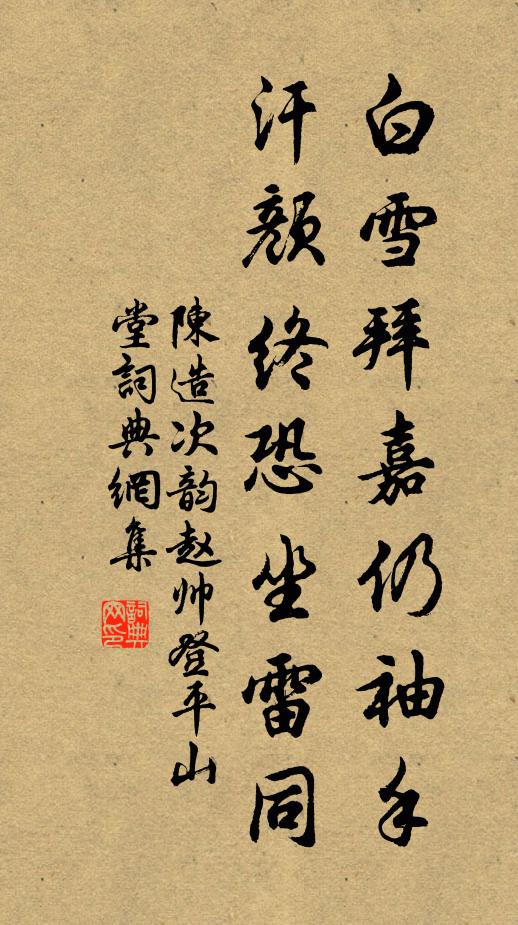 白雪拜嘉仍袖手
汗顏終恐坐雷同
陳造次韵赵帅登平山
堂詞典網集
詞典網印